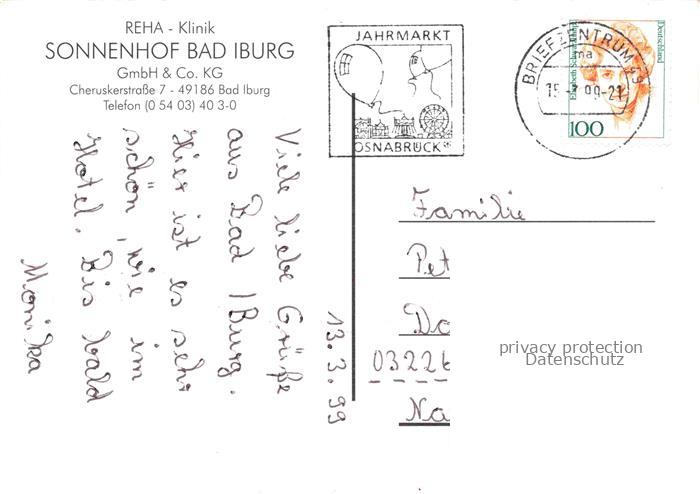 REHA - Klinik
SONNENHOF BAD IBURG
GmbH & Co. KG
Cheruskerstraße 7 - 49186 Bad Iburg
Telefon (0 54 03) 40 3-0
JAHRMARKT
OSNABRÜCK
BRIEFZENTRUM 49
ma
15-3.99-21
Deutschland
100
13.3.99
Viele liebe Grüße
aus Bad IBurg.
Hier ist es sehr
schön, wie im
Hotel. Bis bald
Monika
Familie
Pet
Do
03226
Na
privacy protection
Datenschutz